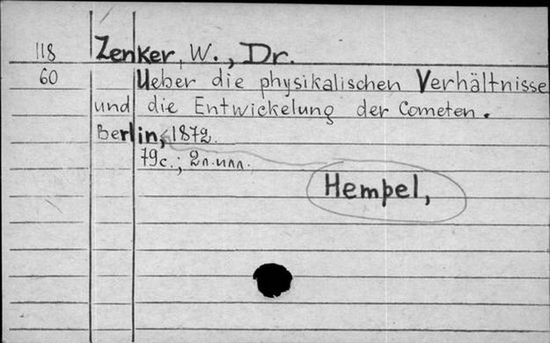 118 Zenker, W., Dr.
60 Ueber die physikalischen Verhältnisse
und die Entwickelung der Cometen.
Berlin, 1872.
79c.; 2л. илл.
Hempel,